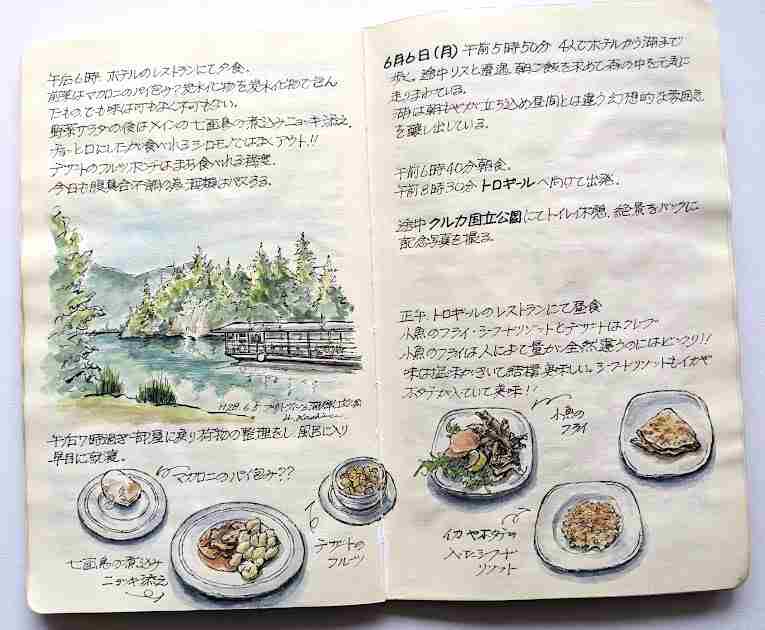 午后6時、ホテルのレストランにて夕食。
前菜はマカロニのパイ包み？炭水化物を炭水化物で包ん
だもの。でも味は可もなく不可もない。
野菜サラダの後はメインの七面鳥の煮込みニョッキ添え。
チョット口にしたが食べれるシロモノではなくアウト!!
デザートのフルーツポンチはまあ食べれる程度。
今日も腹具合不調の為酒類はやめる。
H29.6.5
午后7時過ぎ部屋に戻り荷物の整理をし、風呂に入り
早目に就寝。
マカロニのパイ包み??
七面鳥の煮込み
ニョッキ添え
デザートの
フルーツ
6月6日(月) 午前5時50分 4人でホテルから湖まで
歩く。途中リスと遭遇、朝ご飯を求めて森の中を元気に
走りまわっている。
湖は朝もやが立ち込め昼間とは違う幻想的な雰囲気
を醸し出している。
午前6時40分朝食。
午前8時30分トロギールへ向けて出発。
途中クルカ国立公園にてトイレ休憩、絶景をバックに
記念写真を撮る。
正午、トロギールのレストランにて昼食
小魚のフライ・シーフードリゾットとデザートはクレープ
小魚のフライは人によって量が全然違うのにはビックリ!!
味は塩味がきいて結構美味しい。シーフードリゾットもイカや
ホタテが入っていて美味!!
小魚の
フライ
イカやホタテの
入ったシーフード
リゾット